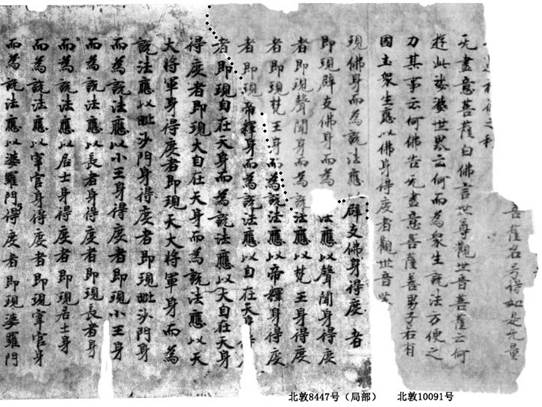 菩薩名号得如是无量
福德之利
无盡意菩薩白佛言世尊觀世音菩薩云何
遊此娑婆世界云何而為衆生說法方便之
力其事云何佛告无盡意菩薩善男子若有
國土衆生應以佛身得度者觀世音
現佛身而為說法應辟支佛身得度者
即現辟支佛身而為法應以聲聞身得度
者即現聲聞身而為說法應以梵王身得度
者即現梵王身而為說法應以帝釋身得度
者即現帝釋身而為說法應以自在天身
者即現自在天身而為說法應以大自在天身
得度者即現大自在天身而為說法應以天
大將軍身得度者即現天大將軍身而為
說法應以毗沙門身得度者即現毗沙門身
而為說法應以小王身得度者即現小王身
而為說法應以長者身得度者即現長者身
而為說法應以居士身得度者即現居士身
而為說法應以宰官身得度者即現宰官身
而為說法應以婆羅門得度者即現婆羅門
北敦8447号（局部）
北敦10091号